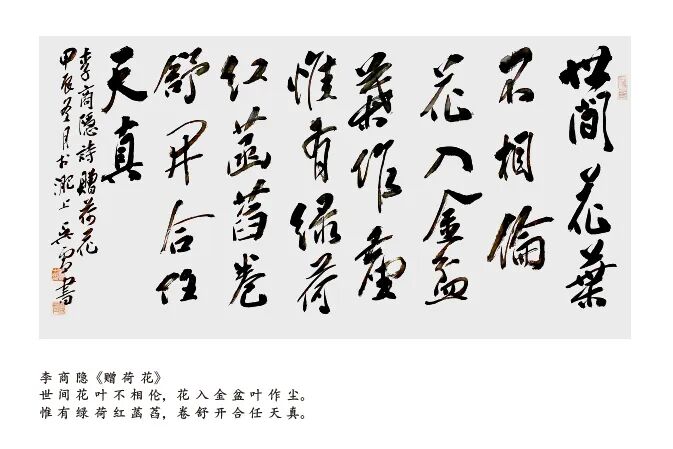 世間花葉
不相倫
花入金盆
葉作塵
惟有绿荷
红菡萏卷
舒开合任
天真
李商隐詩贈荷花
甲辰月於淝上吴雪書
李商隐《赠荷花》
世间花叶不相伦，花入金盆叶作尘。
惟有绿荷红菡萏，卷舒开合任天真。